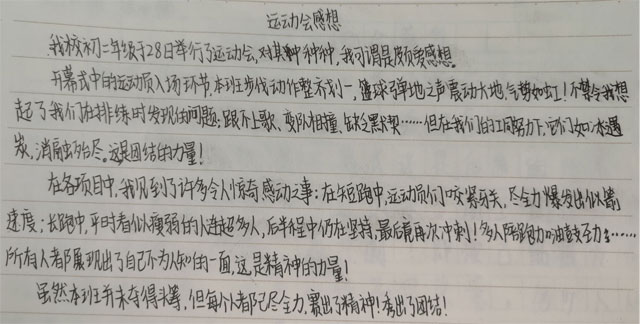 运动会感想
我校初二年级于28日举行了运动会,对其种种种,我可谓是颇受感想。
开幕式中的运动员入场环节,本班步伐动作整齐划一,篮球弹地之声震动大地,气势如虹!不禁令我想
起了我们在排练时发现的问题:跟不上歌、变队相撞、缺乏默契……但在我们的共同努力下,它们如冰遇
炭,消融殆尽。这是团结的力量!
在各项目中,我见到了许多令人惊奇感动之事:在短跑中,运动员们咬紧牙关,尽全力爆发出似箭
速度;长跑中,平时看似瘦弱的人连超多人,后半程中仍在坚持,最后竟再次冲刺!多人陪跑加油鼓劲……
所有人都展现出了自己不为人知的一面,这是精神的力量!
虽然本班并未夺得头筹,但每个人都已尽全力,赛出了精神!秀出了团结!